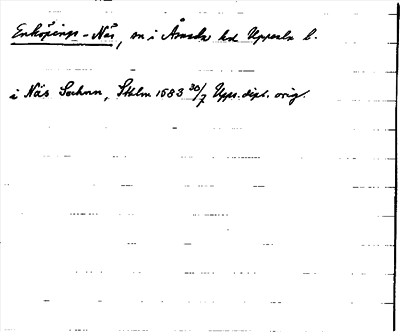 Enköpings-Näs, sn i Åsunda hd Uppsala l.
i Näs Sochnn, Sthlm 1583 30/7 Upps. dipl. orig.